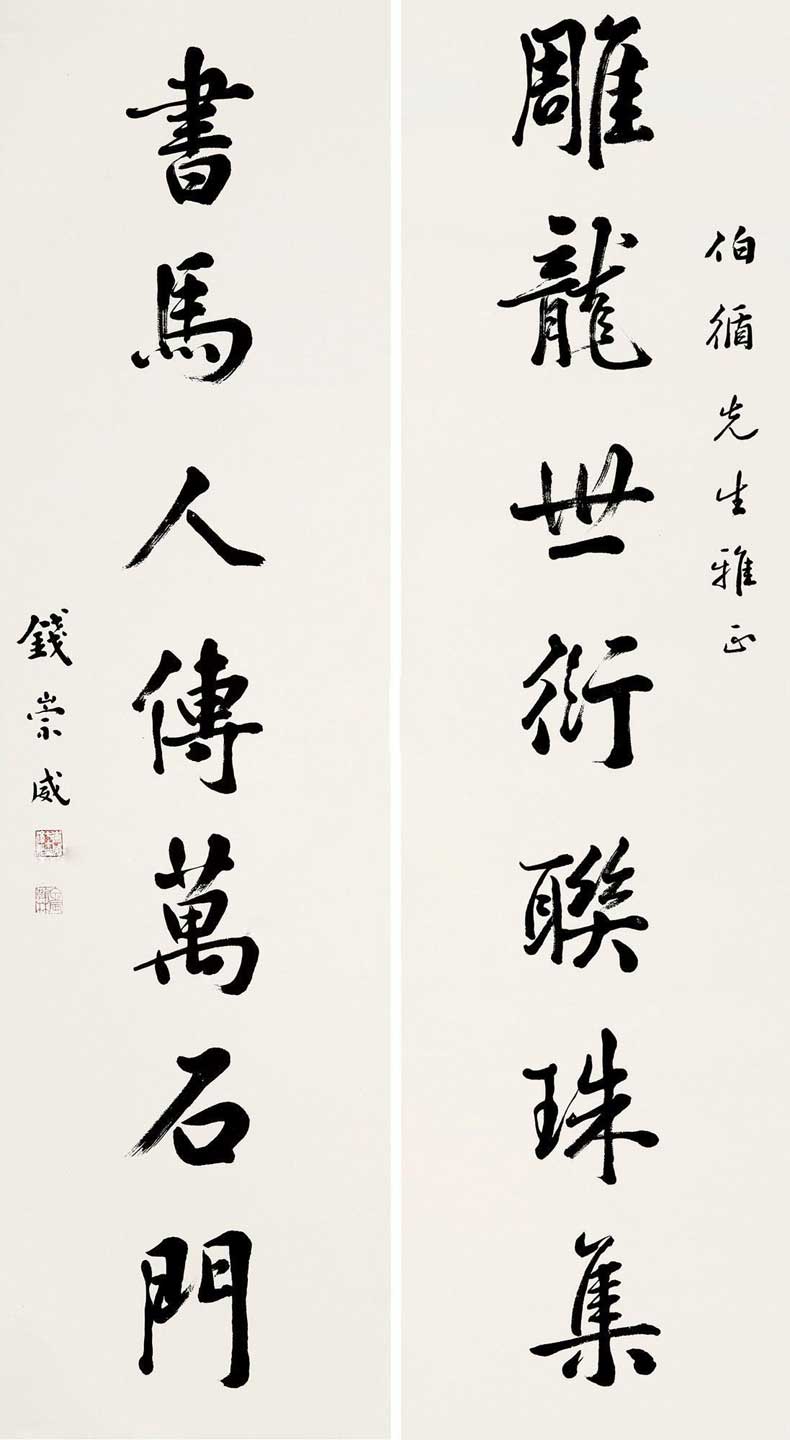 伯循先生雅正
雕龍世衍聯珠集
書馬人傳萬石門
錢崇威